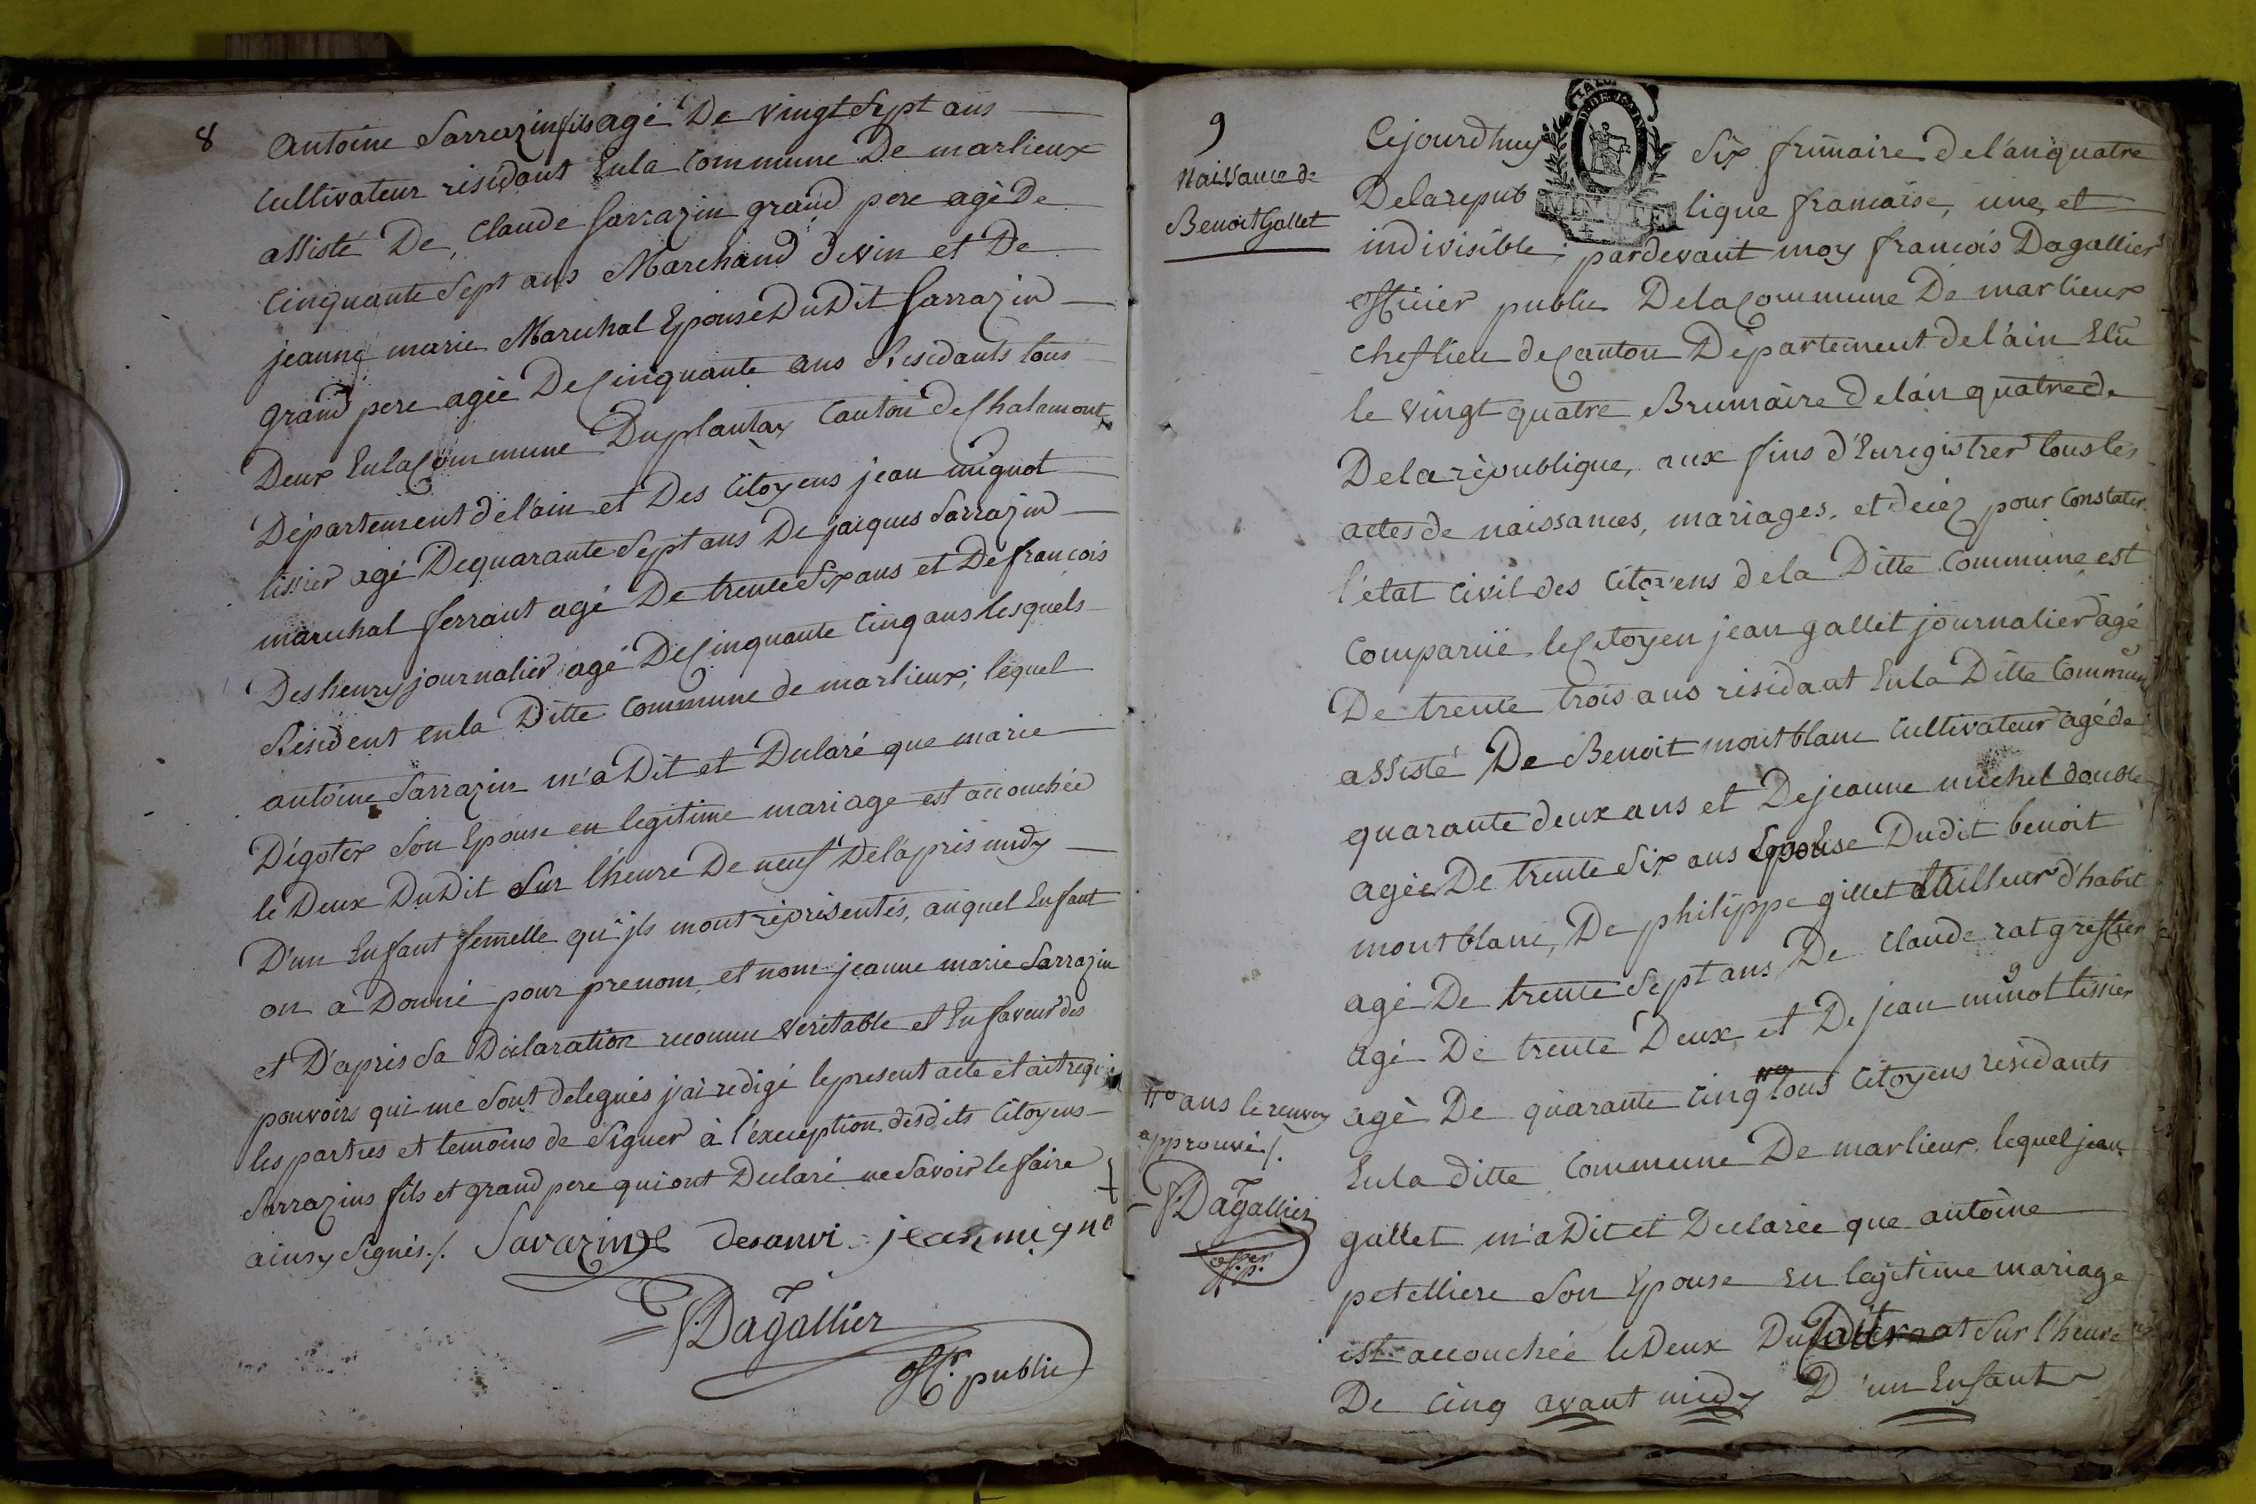 8
antoine Sarrazin fils agé De vingt Sept ans
Cultivateur residant Enla Commune De marlieux
assisté De, Claude Sarrazin grand pere agé De
Cinquante Sept ans Marchand devin et De
jeanne marie Maruhal Epouse DuDit Sarrazin
grand pere agèe De Cinquante ans Residants tous
Deux Enla Commune Duplantay Canton de Chalamont
Département de l'ain et Des Citoyens jean mignot
tissier agé Dequarante Sept ans De jacques Sarrazin
maruhal ferrant agé De trente Six ans et De francois
Deshenry journalier agé De Cinquante Cinq ans lesquels
Resident enla Ditte Commune de marlieux; lequel
antoine Sarrazin m'a Dit et Dularé que marie
Dégotex Son Epouse en legitime mariage est accouchée
le Deux DuDit Sur l'heure De neuf Del'apris midy
D'un Enfant femelle qu'jls mont réprisentés, auquel Enfant
on a Donné pour prenom et nom jeanne marie Sarrazin
et D'apris Sa Déclaration reconnu veritable et En faveur des
pouvoirs qui me Sont delegués j'ai redigé lepresent acte et ait requi
les parties et temoins de Signer à l'exception desdits Citoyens
Sarrazins fils et grand pere qui ont Declaré ne Savoir le faire
ainsy Signés ./. Savazin desanvi jean migno
F Dagallier
off.er public
9
Naissance de
Benoit Gallet
Cejourdhuy Six frimaire de l'an quatre
MINUTE
Delarepub lique francaise, une, et
indivisible; pardevant moy francois Dagallier
officier public Dela Commune De marlieux
Cheflieu de Canton Département de l'ain Elu
le vingt quatre Brumaire de l'an quatre de
Dela république, aux fins d'Enregistrer tous les
actes de naissances, mariages, et décéz pour Constater
l'état Civil des Citoyens dela Ditte Commune est
Comparüé le Citoyen jean gallet journalier agé
De trente trois ans residant Enla Ditte Commune
assisté De Benoit montblanc Cultivateur agé de
quarante deux ans et De jeanne michel double
agée De trente Six ans Epouse Dudit benoit
montblanc, De philippe gillet tailleur d'habit
agé De trente Sept ans De Claude rat greffier
agé De trente Deux et De jean minot tissier
g
agè De quarante Cinq tous Citoyens residants
ans le renvoy
approuvé ./.
F Dagallier
off.er p.
Enla ditte Commune De marlieux. lequel jean
gallet m'a Dit et Declarèe que antoine
petelliere Son Epouse En legitime mariage
est accouchée le Deux Du Sur l'heure
De Cinq avant midy D'un Enfant